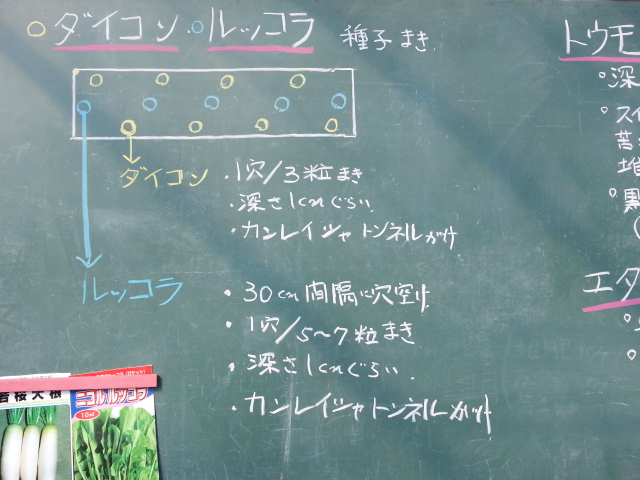 ○ダイコン・○ルッコラ 種子まき
ダイコン
・1穴/3粒まき
・深さ1cmぐらい
・カンレイシャトンネルがけ
ルッコラ
・30cm間隔に穴空け
・1穴/5~7粒まき
・深さ1cmぐらい
・カンレイシャトンネルがけ
トウモ
○深
○スイ
苦
○黒
(
エダ
若桜大根
ルッコラ
10ml